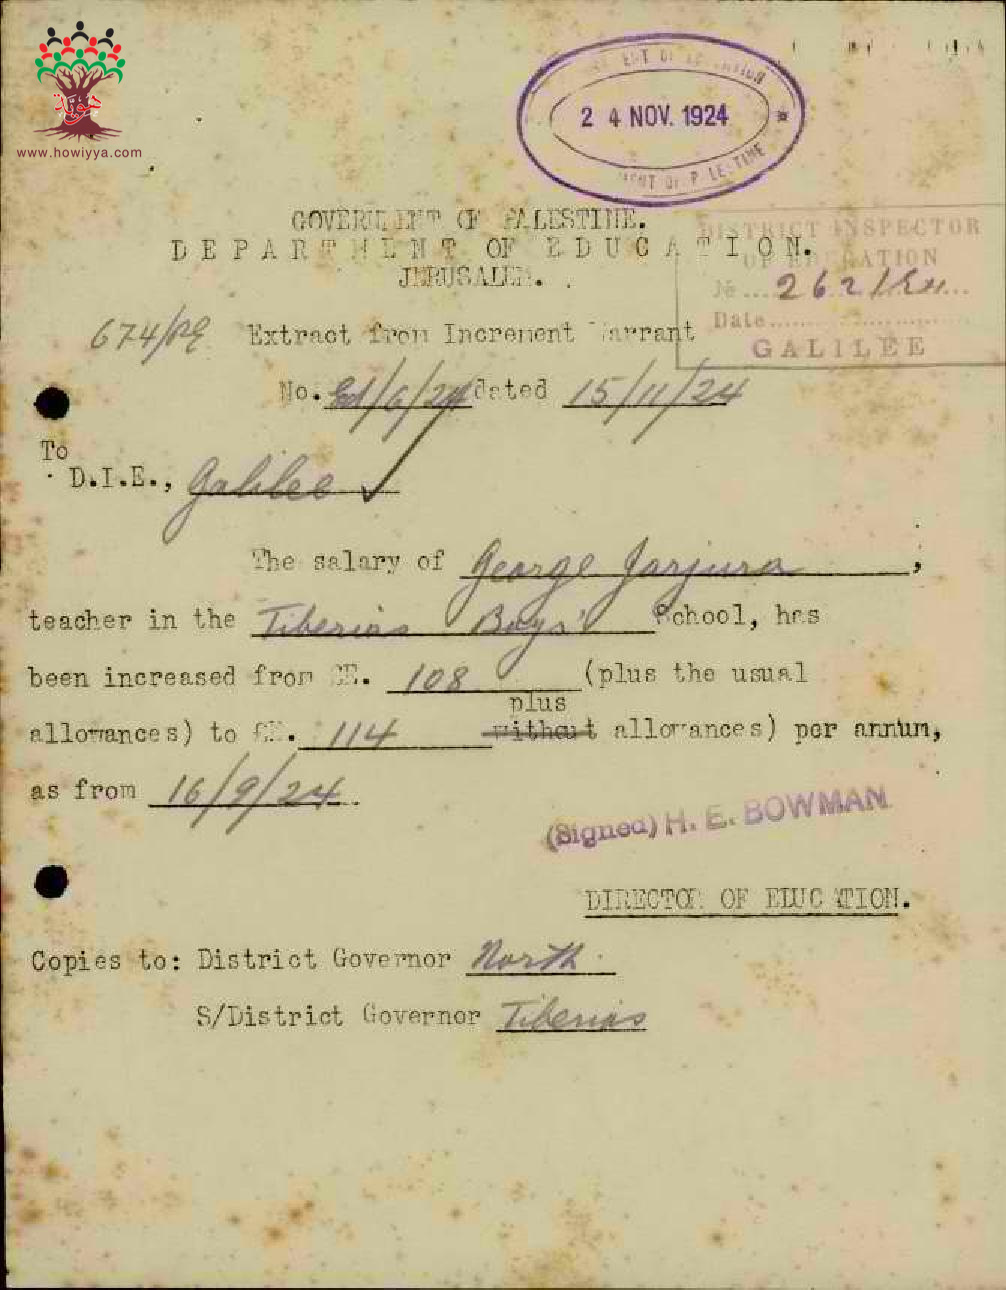 حوية
www.howiyya.com
DEPARTMENT OF EDUCATION
24 NOV. 1924
GOVERNMENT OF PALESTINE
GOVERNMENT OF PALESTINE.
DEPARTMENT OF EDUCATION.
JERUSALEM.
DISTRICT INSPECTOR
OF EDUCATION
No ... 262/
Date
GALILEE
674/
Extract from Increment Warrant
No. Ed/6/24 dated 15/11/24
To
D.I.E., Galilee
The salary of George Jarjura,
teacher in the Tiberias Boys' School, has
been increased from £E. 108 (plus the usual
plus
allowances) to £E. 114 without allowances) per annum,
as from 16/9/24.
(Signed) H. E. BOWMAN
DIRECTOR OF EDUCATION.
Copies to: District Governor North.
S/District Governor Tiberias